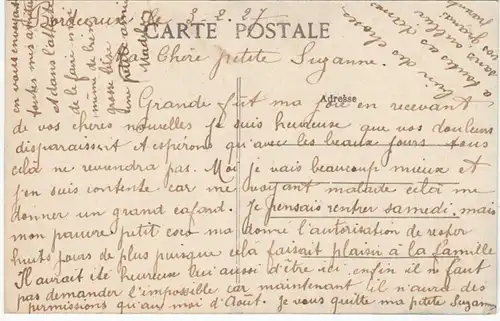 le 2.2.27
CARTE POSTALE
Ma Chère petite Suzanne.
Adresse
Grande fût ma joie en recevant
de vos chères nouvelles je suis heureuse que vos douleurs
disparaissent. Espérons qu'avec les beaux jours tous
cela ne reviendra pas. Moi je vais beaucoup mieux et
j'en suis contente car me voyant malade cela me
donner un grand cafard. Je pensais rentrer samedi, mais
mon pauvre petit coco ma donné l'autorisation de rester
huits jours de plus puisque cela faisait plaisir à la famille
Il aurait été heureux lui aussi d'être ici, enfin il n faut
pas demander l'impossible car maintenant il n'aura des
permissions qu'au moi d'Août. Je vous quitte ma petite Suzanne
en vous envoyant
toutes mes amitiés
et dans l'attente
de le faire moi
même de bien
grosse bise
une petite amie
bien des choses
à toutes ces dames